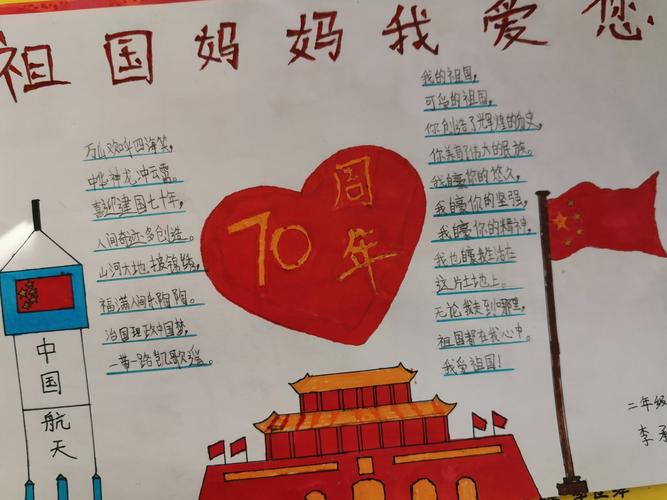 祖国妈妈我爱您
万山欢呼四海笑，
中华神龙冲云霄。
喜迎建国七十年，
人间奇迹多创造。
山河大地披锦绣，
福满人间乐陶陶。
治国理政中国梦，
一带一路凯歌强。
70周年
我的祖国，
可爱的祖国，
你创造了辉煌的历史，
你养育了伟大的民族。
我自豪你的悠久，
我自豪你的坚强，
我自豪你的精神，
我也自豪生活在
这片土地上。
无论我走到哪里，
祖国都在我心中。
我爱祖国！
中国
航天
二年级
李承